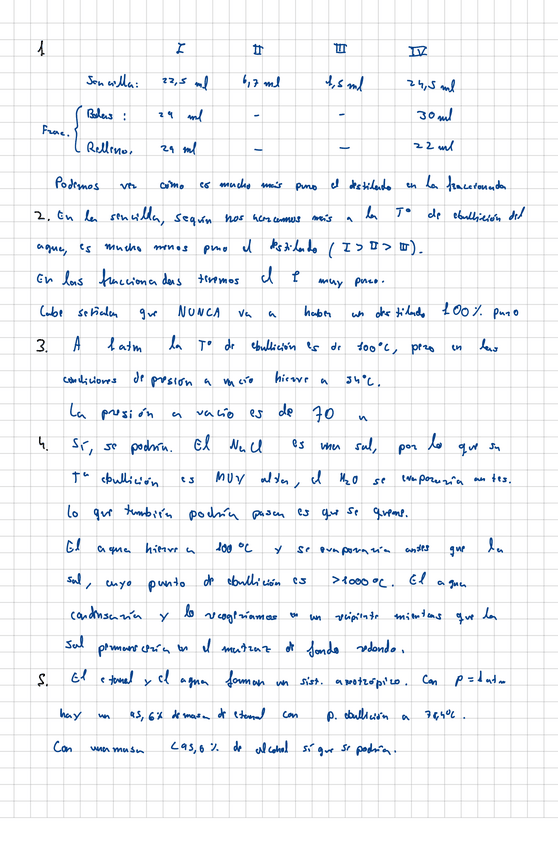 1 I II III IV
Sencilla: 22,5 ml 6,7 ml 1,5 ml 24,5 ml
Bolas: 29 ml - - 30 ml
Frac.
Relleno. 29 ml - - 22 ml
Podemos ver cómo es mucho más puro el destilado en la fraccionada
2. En la sencilla, según nos acercamos más a la Tº de ebullición del
agua, es mucho menos puro el destilado (I > II > III).
En las fraccionadas tenemos el I muy puro.
Cabe señalar que NUNCA va a haber un destilado 100% puro
3. A 1 atm la Tº de ebullición es de 100ºC, pero en las
condiciones de presión a vacío hierve a 34ºC.
La presión a vacío es de 70
4. Sí, se podría. El NaCl es una sal, por lo que su
Tª ebullición es MUY alta, el H2O se evaporaría antes.
Lo que también podría pasar es que se queme.
El agua hierve a 100 ºC y se evaporaría antes que la
sal, cuyo punto de ebullición es >1000ºC. El agua
condensaría y lo recogeríamos en un recipiente mientras que la
sal permanecería en el matraz de fondo redondo.
5. El etanol y el agua forman un sist. azeotrópico. Con p = 1 atm
hay un 95,6% de masa de etanol con p. ebullición a 78,4ºC.
Con una masa <95,6% de alcohol sí que se podría.